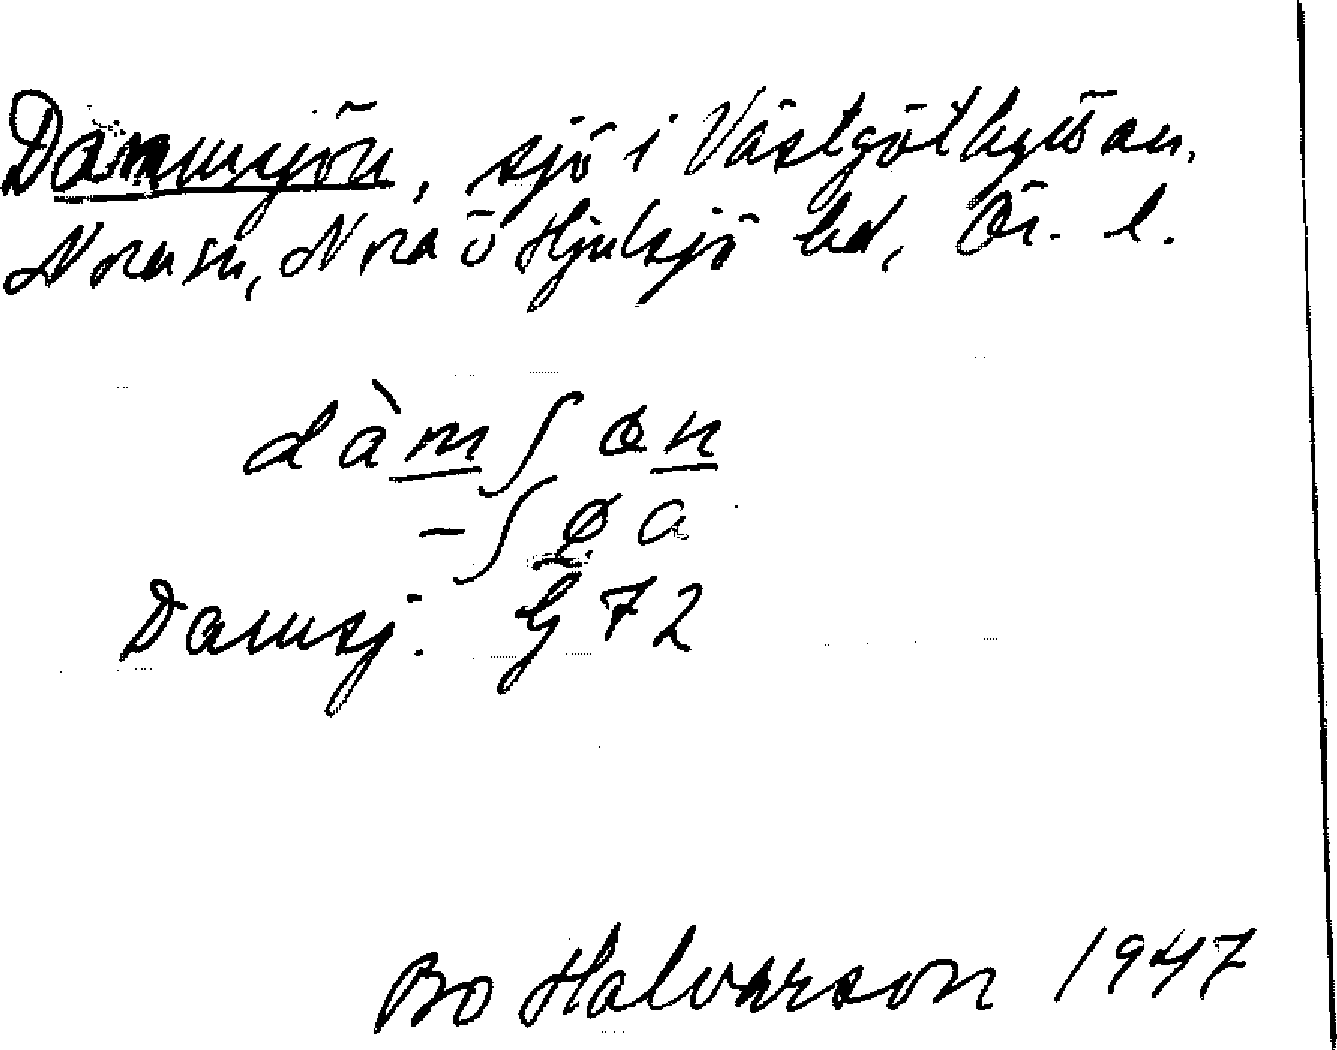 Dammsjön, sjö i Västgöthyttan,
Nora sn, Nora o Hjulsjö bd, Ör. l.
dàmʃøn
-ʃøa
Damsj. G 72
Bo Halvarson 1947